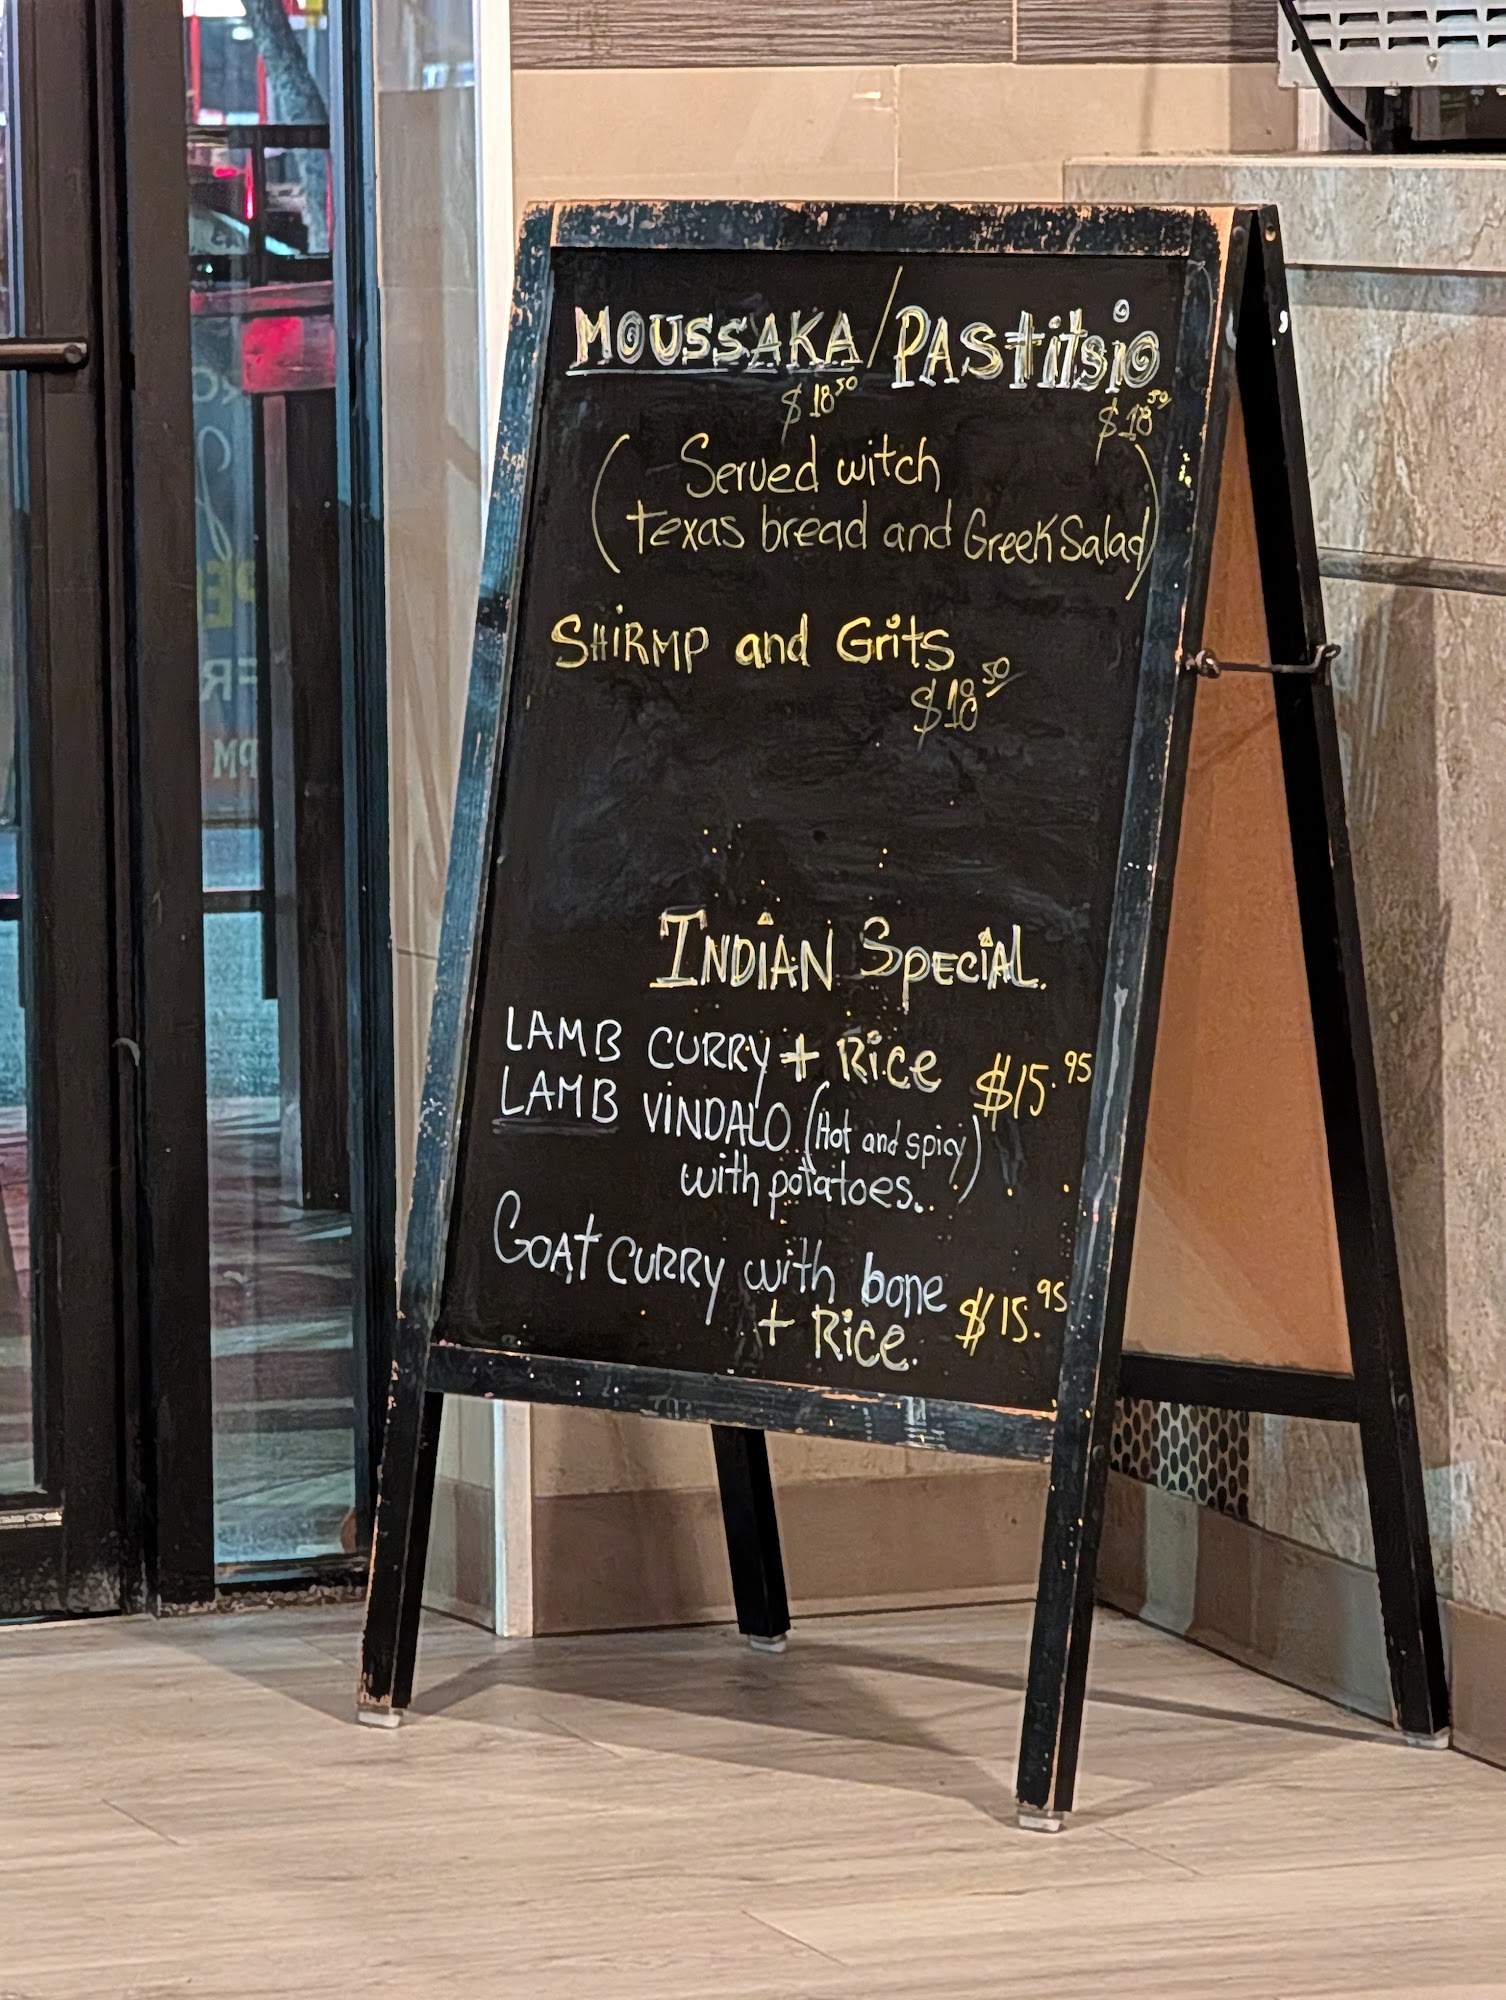 MOUSSAKA/PAStitsio
$18.50 $18.50
(Served witch
texas bread and Greek Salad)
SHiRMP and Grits
$18.50
INDiAN SpECiAL.
LAMB CURRY + Rice $15.95
LAMB VINDALO (Hot and spicy)
with potatoes..
GOAt CURRY with bone
+ Rice. $15.95
PE
FR
PM